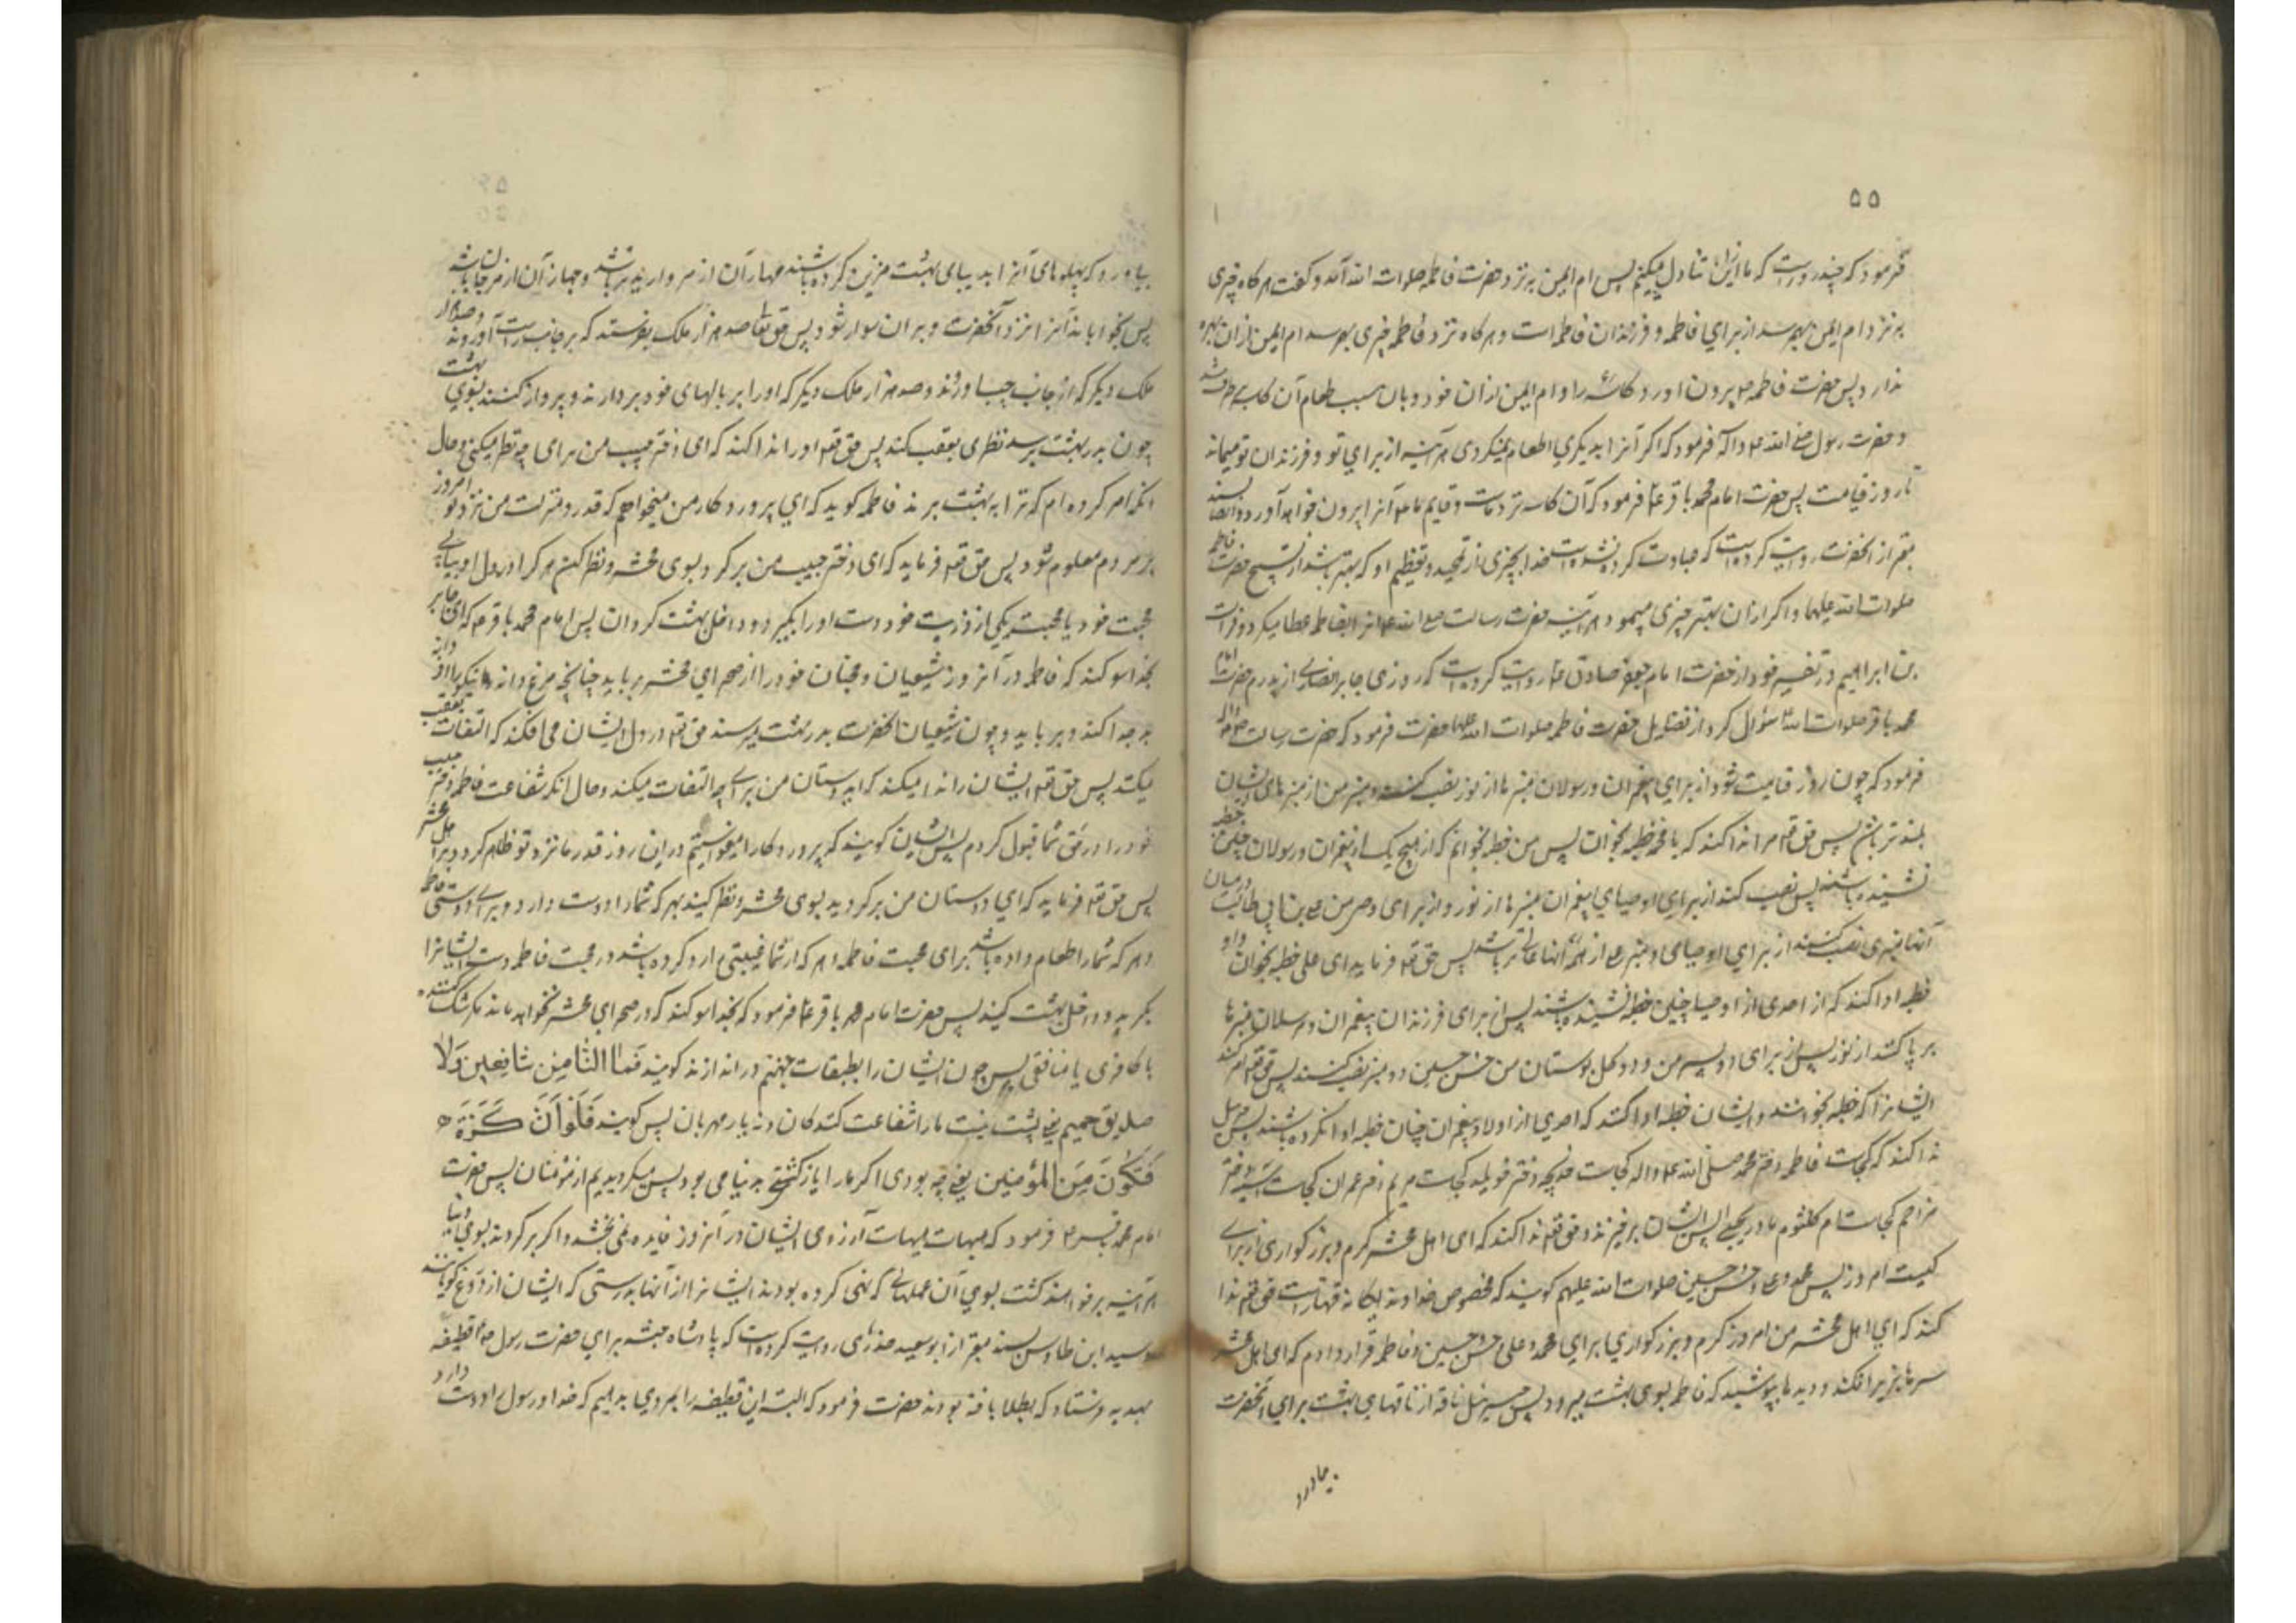 ۵۵
فرمود که چند روزست که ما ازین تناول میکنیم پس ام ایمن به نزد حضرت فاطمه صلوات الله آمد و گفت هرگاه چیزی
به نزد ام ایمن بهم رسد از برای فاطمه و فرزندان فاطمه است و هرگاه نزد فاطمه چیزی بهم رسد ام ایمن از ان بهره
ندارد پس حضرت فاطمه ع بیرون اورد کاسه را و ام ایمن از ان خورد و بان سبب طعام آن کاسه برطرف شد
و حضرت رسول صلی الله ع و اله فرمود که اگر آنرا بدیگری اطعام نمیکردی هر آینه از برای تو و فرزندان تو میماند
تا روز قیامت پس حضرت امام محمد باقر ع فرمود که آن کاسه نزد ماست و قایم ما ع آنرا بیرون خواهد آورد و ایضا بسند
معتبر از انحضرت روایت کرده است که عبادت کرده نشده است خدا بچیزی از تمجید و تعظیم او که بهتر باشد از تسبیح حضرت فاطمه
صلوات الله علیها و اگر از ان بهتر چیزی میبود هر آینه حضرت رسالت صلی الله ع انرا بفاطمه عطا میکرد و فرات
بن ابراهیم در تفسیر خود از حضرت امام جعفر صادق ع روایت کرده است که روزی جابر انصاری از پدرم حضرت امام
محمد باقر صلوات الله سؤال کرد از فضایل حضرت فاطمه صلوات الله علیها حضرت فرمود که حضرت رسالت ص و اله
فرمود که چون روز قیامت شود از برای پیغمبران و رسولان منبرها از نور نصب کنند و منبر من از منبرهای ایشان
بلند تر باشد پس حق تع مرا ندا کند که یا محمد خطبه بخوان پس من خطبه بخوانم که از هیچ یک از پیغمبران و رسولان چنین خطبه
نشنیده باشند پس نصب کند از برای اوصیای پیغمبران منبرها از نور و از برای وصی من علی بن ابی طالب در میان
آنها منبری نصب کنند از برای اوصیای و منبر علی از همه آنها عالی تر باشد پس حق تع فرماید ای علی خطبه بخوان و او
خطبه ادا کند که از احدی از اوصیا چنین خطبه نشنیده باشند پس از برای فرزندان پیغمبران و مرسلان منبرها
بر پا کند از نور پس از برای دو پسر من و دو گل بوستان من حسن و حسین دو منبر نصب کنند پس حق تع امر کند
ایشانرا که خطبه بخوانند و ایشان خطبه ادا کنند که احدی از اولاد پیغمبران چنان خطبه ادا نکرده باشند پس جبرئیل
ندا کند که کجاست فاطمه دختر محمد صلی الله ع و اله کجاست خدیجه دختر خویلد کجاست مریم دختر عمران کجاست آسیه دختر
مزاحم کجاست ام کلثوم مادر یحیی پس ایشان برخیزند و حق تع ندا کند که ای اهل محشر کرم و بزرگواری از برای
کیست امروز پس محمد و علی و حسن و حسین صلوات الله علیهم گویند که مخصوص خداوند یگانه قهارست حق تع ندا
کند که ای اهل محشر من امروز کرم و بزرگواری برای محمد و علی و حسن و حسین و فاطمه قرار دادم که ای اهل محشر
سرها بزیر افکنید و دیدها بپوشید که فاطمه بسوی بهشت میرود پس جبرئیل ناقه از ناقهای بهشت برای آنحضرت
بیاورد
بیاورد که پهلوهای آنرا بدیبای بهشت مزین کرده باشند مهار آن از مروارید تر باشد و جهاز آن از مرجان باشد
پس بخواباند آنرا نزد آنحضرت و بر ان سوار شود پس حق تعالی صد هزار ملک بفرستد که بر جانب راست آورند و صد هزار
ملک دیگر که از جانب چپ اورند و صد هزار ملک دیگر که او را بر بالهای خود بردارند و پرواز کنند بسوی بهشت
چون بدر بهشت برسد نظری بعقب کند پس حق تع او را ندا کند که ای دختر حبیب من برای چه نظر میکنی و حال
انکه امر کرده ام که ترا به بهشت برند فاطمه گوید که ای پروردگار من میخواهم که قدر و منزلت من نزد تو امروز
بر مردم معلوم شود پس حق تع فرماید که ای دختر حبیب من برگرد بسوی محشر و نظر کن هر که را در دل او بیابی
محبت خود یا محبت یکی از ذریت خود دست او را بگیر و داخل بهشت گردان پس امام محمد باقر ع که ای جابر
بخدا سوگند که فاطمه در آنروز شیعیان و محبان خود را از صحرای محشر برباید چنانچه مرغ دانه نیکو را از دانه
بد جدا کند و برباید و چون شیعیان انحضرت بدر بهشت برسند حق تع در دل ایشان می افکند که التفات بعقب
میکنند پس حق تع ایشان را ندا میکند که ای دوستان من برای چه التفات میکنید و حال انکه شفاعت فاطمه دختر حبیب
خود را در حق شما قبول کردم پس ایشان گویند که پروردگارا میخواستیم در این روز قدر ما نزد تو ظاهر گردد بر اهل محشر
پس حق تع فرماید که ای دوستان من برگردید بسوی محشر و نظر کنید بهر که شما را دوست دارد و برای دوستی فاطمه
و هر که شما را طعام داده باشد برای محبت فاطمه و هر که از شما غیبتی را رد کرده باشد در محبت فاطمه دست ایشانرا
بگیرید و داخل بهشت کنید پس حضرت امام محمد باقر ع فرمود که بخدا سوگند که در صحرای محشر نخواهد ماند مگر شک کننده
یا کافری یا منافقی پس چون ایشان را بطبقات جهنم در اندازند گویند فَمَا لَنَا مِن شَافِعِینَ وَلَا
صَدِیقٍ حَمِیمٍ یعنی پشت نیست ما را شفاعت کنندگان و نه یار مهربان پس گویند فَلَوْ أَنَّ لَنَا کَرَّةً
فَنَکُونَ مِنَ المُؤْمِنِینَ یعنی چه بودی اگر ما را باز گشتی بدنیا می بود پس میگردیدیم از مؤمنان پس حضرت
امام محمد باقر ع فرمود که هیهات هیهات آرزوی ایشان در آنروز فایده نمی بخشد و اگر برگردند بسوی دنیا
هر آینه بر خواهند گشت بسوی آن عملهائی که نهی کرده بودند ایشانرا از آنها بدرستی که ایشان از دروغ گویانند
و سید ابن طاوس بسند معتبر از ابو سعید خدری روایت کرده است که پادشاه حبشه برای حضرت رسول ص قطیفه
بهدیه فرستاد که بطلا بافته بودند حضرت فرمود که البته این قطیفه را بمردی بدهیم که خدا و رسول را دوست دارد